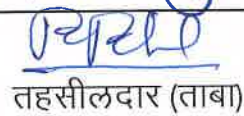 तहसीलदार (ताबा)